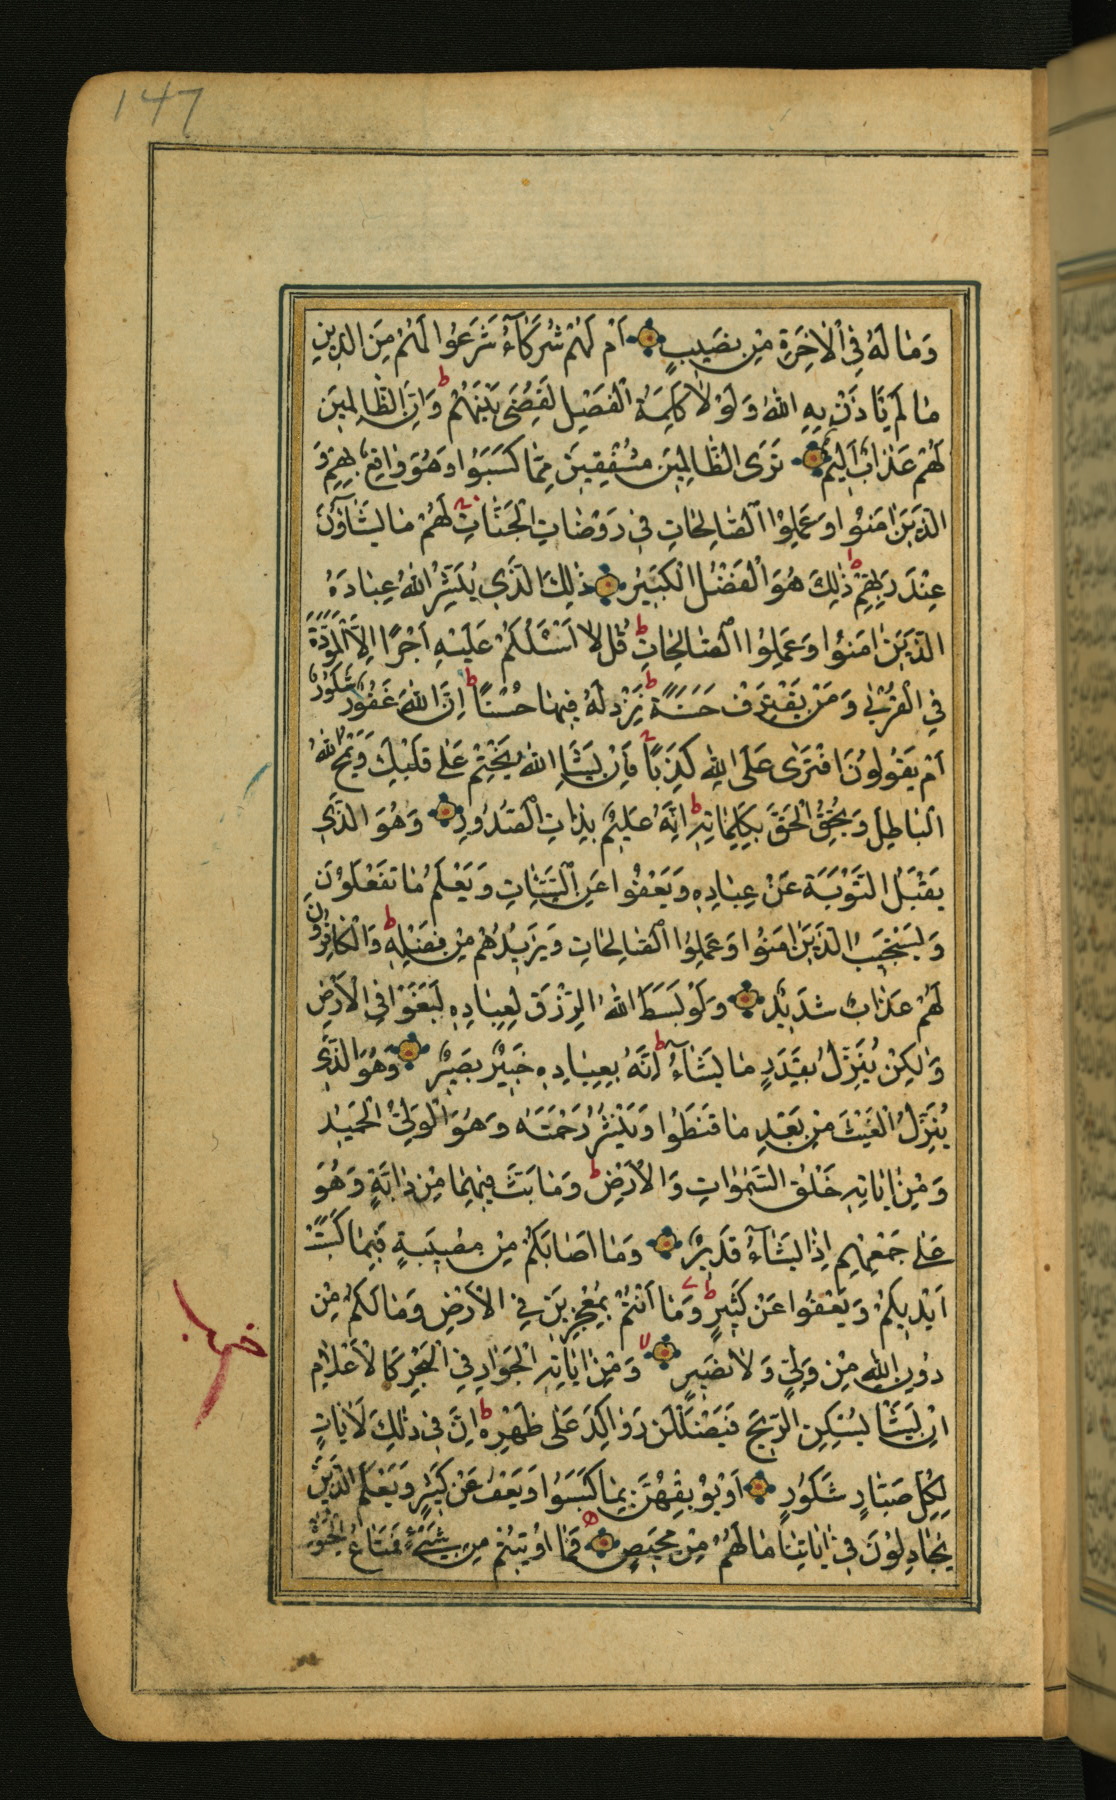 147
وَمَا لَهُ فِي الْاٰخِرَةِ مِنْ نَصِيبٍ اَمْ لَهُمْ شُرَكَآءُ شَرَعُوا لَهُمْ مِنَ الدِّينِ
مَا لَمْ يَاْذَنْ بِهِ اللّٰهُ وَلَوْلَا كَلِمَةُ الْفَصْلِ لَقُضِيَ بَيْنَهُمْ ط وَاِنَّ الظَّالِمِينَ
لَهُمْ عَذَابٌ اَلِيمٌ تَرَى الظَّالِمِينَ مُشْفِقِينَ مِمَّا كَسَبُوا وَهُوَ وَاقِعٌ بِهِمْ وَ
الَّذِينَ اٰمَنُوا وَعَمِلُوا الصَّالِحَاتِ فِي رَوْضَاتِ الْجَنَّاتِ لَهُمْ مَا يَشَآؤُنَ
عِنْدَ رَبِّهِمْ ط ذٰلِكَ هُوَ الْفَضْلُ الْكَبِيرُ ذٰلِكَ الَّذِي يُبَشِّرُ اللّٰهُ عِبَادَهُ
الَّذِينَ اٰمَنُوا وَعَمِلُوا الصَّالِحَاتِ ط قُلْ لَا اَسْئَلُكُمْ عَلَيْهِ اَجْرًا اِلَّا الْمَوَدَّةَ
فِي الْقُرْبٰى وَمَنْ يَقْتَرِفْ حَسَنَةً ط نَزِدْ لَهُ فِيهَا حُسْنًا ط اِنَّ اللّٰهَ غَفُورٌ شَكُورٌ
اَمْ يَقُولُونَ افْتَرٰى عَلَى اللّٰهِ كَذِبًا فَاِنْ يَشَاِ اللّٰهُ يَخْتِمْ عَلٰى قَلْبِكَ وَيَمْحُ اللّٰهُ
الْبَاطِلَ وَيُحِقُّ الْحَقَّ بِكَلِمَاتِهِ ط اِنَّهُ عَلِيمٌ بِذَاتِ الصُّدُورِ وَهُوَ الَّذِي
يَقْبَلُ التَّوْبَةَ عَنْ عِبَادِهِ وَيَعْفُوا عَنِ السَّيِّئَاتِ وَيَعْلَمُ مَا تَفْعَلُونَ
وَيَسْتَجِيبُ الَّذِينَ اٰمَنُوا وَعَمِلُوا الصَّالِحَاتِ وَيَزِيدُهُمْ مِنْ فَضْلِهِ ط وَالْكَافِرُونَ
لَهُمْ عَذَابٌ شَدِيدٌ وَلَوْ بَسَطَ اللّٰهُ الرِّزْقَ لِعِبَادِهِ لَبَغَوْا فِي الْاَرْضِ
وَلٰكِنْ يُنَزِّلُ بِقَدَرٍ مَا يَشَآءُ ط اِنَّهُ بِعِبَادِهِ خَبِيرٌ بَصِيرٌ وَهُوَ الَّذِي
يُنَزِّلُ الْغَيْثَ مِنْ بَعْدِ مَا قَنَطُوا وَيَنْشُرُ رَحْمَتَهُ وَهُوَ الْوَلِيُّ الْحَمِيدُ
وَمِنْ اٰيَاتِهِ خَلْقُ السَّمٰوَاتِ وَالْاَرْضِ ط وَمَا بَثَّ فِيهِمَا مِنْ دَابَّةٍ وَهُوَ
عَلٰى جَمْعِهِمْ اِذَا يَشَآءُ قَدِيرٌ وَمَا اَصَابَكُمْ مِنْ مُصِيبَةٍ فَبِمَا كَسَبَتْ
اَيْدِيكُمْ وَيَعْفُوا عَنْ كَثِيرٍ ط وَمَا اَنْتُمْ بِمُعْجِزِينَ فِي الْاَرْضِ وَمَا لَكُمْ مِنْ
دُونِ اللّٰهِ مِنْ وَلِيٍّ وَلَا نَصِيرٍ وَمِنْ اٰيَاتِهِ الْجَوَارِ فِي الْبَحْرِ كَالْاَعْلَامِ
اِنْ يَشَاْ يُسْكِنِ الرِّيحَ فَيَظْلَلْنَ رَوَاكِدَ عَلٰى ظَهْرِهِ ط اِنَّ فِي ذٰلِكَ لَاٰيَاتٍ
لِكُلِّ صَبَّارٍ شَكُورٍ اَوْ يُوبِقْهُنَّ بِمَا كَسَبُوا وَيَعْفُ عَنْ كَثِيرٍ وَيَعْلَمَ الَّذِينَ
يُجَادِلُونَ فِي اٰيَاتِنَا مَا لَهُمْ مِنْ مَحِيصٍ فَمَا اُوتِيتُمْ مِنْ شَيْءٍ فَمَتَاعُ الْحَيٰوةِ